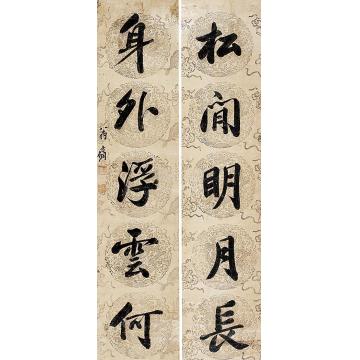 松間明月長
身外浮雲何